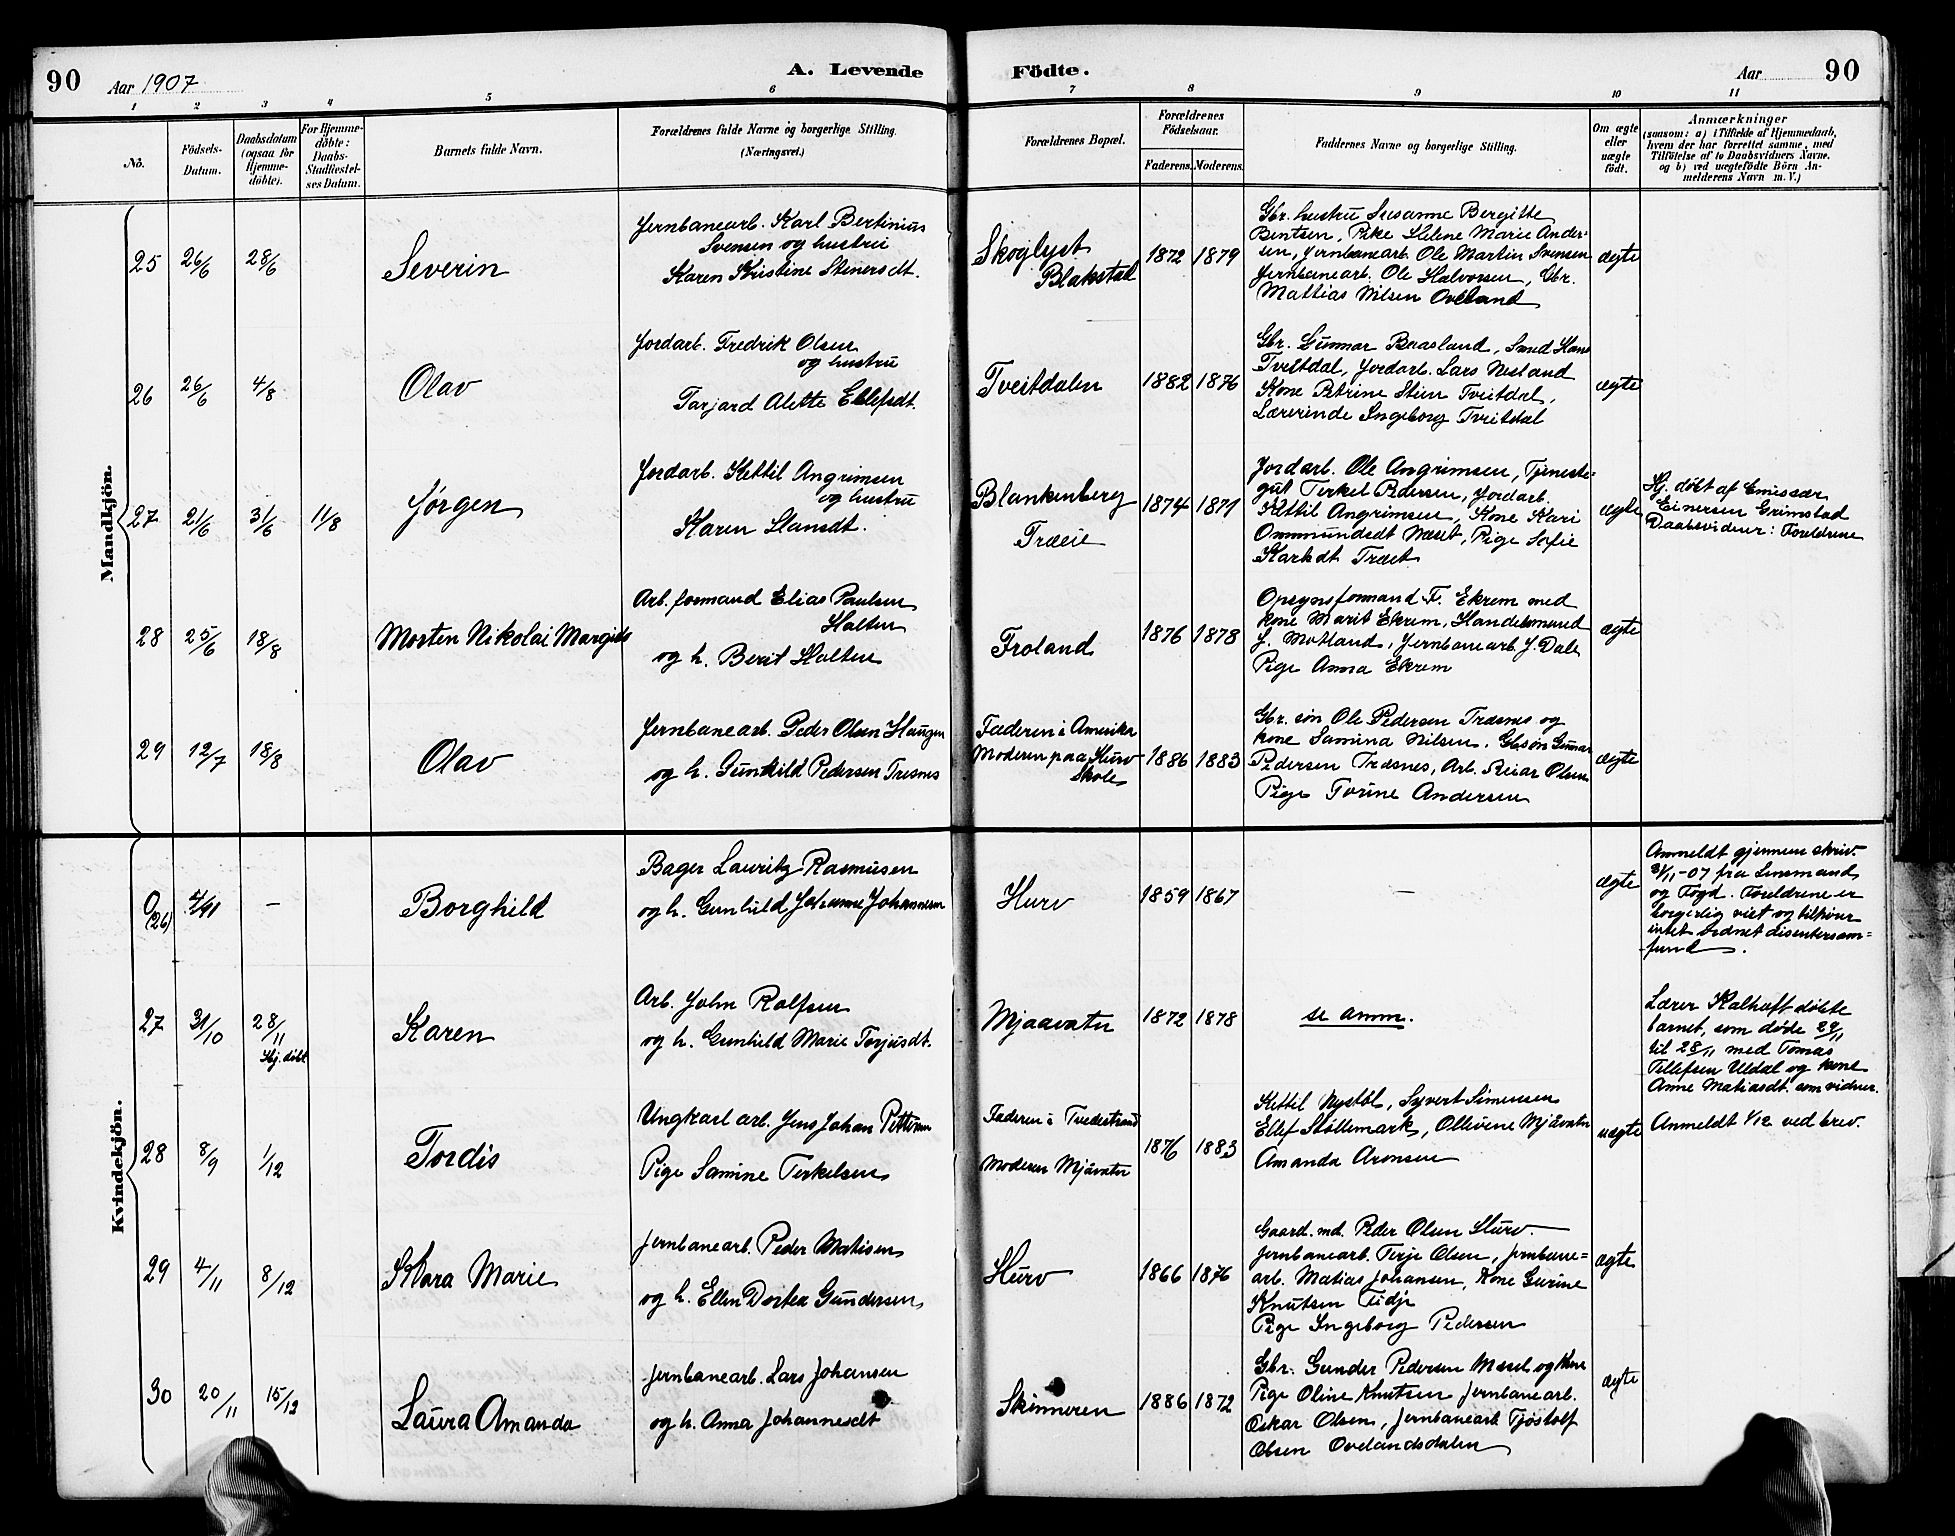 90
Aar 1907
A. Levende
Födte.
Aar
90
1 2 3 4 5 6 7 8 9 10 11
No.
Födsels-
Datum.
Daabsdatum
(ogsaa for
Hjemme-
döbte).
For Hjemme-
döbte:
Daabs-
Stadfæstel-
ses Datum.
Barnets fulde Navn.
Forældrenes fulde Navne og borgerlige Stilling.
(Næringsvei.)
Forældrenes Bopæl.
Forældrenes
Födselsaar.
Faderens.
Moderens.
Faddernes Navne og borgerlige Stilling.
Om ægte
eller
uægte
födt.
Anmærkninger
(saasom: a) i Tilfælde af Hjemmedaab,
hvem der har forrettet samme, med
Tilföielse af to Daabsvidners Navne.
og b) ved uægtefödte Börn An-
melderens Navn m. V.)
Mandkjön.
25
26/6
28/6
Severin
Jernbanearb. Karl Bertinius
Svensen og hustru
Karen Kristine Steinersdt.
Skoglyst
Blakstad
1872
1879
Gbr. hustru Susanne Bergitte
Bentsen, Pike Helene Marie Ander-
sen, Jernbanearb. Ole Martin Svensen
Jernbanearb. Ole Halvorsen, Gbr.
Mattias Nilsen Oveland
ægte
26
26/6
4/8
Olav
Jordarb. Fredrik Olsen
og hustru
Tarjard Alette Ellefsdt.
Tveitdalen
1882
1876
Gbr. Gunnar Baasland, Smed Hans
Tveitdal, Jordarb. Lars Nesland
Kone Petrine Stien Tveitdal,
Lærerinde Ingeborg Tveitdal
ægte
27
21/6
31/6
11/8
Jørgen
Jordarb. Kettil Angrimsen
og hustru
Karen Hansdt.
Blankenberg
Træeie
1874
1871
Jordarb. Ole Angrimsen, Tjeneste-
gut Terkel Pedersen, Jordarb.
Kettil Angrimsen, Kone Kari
Ommundsdt Næset, Pige Sofie
Træet
ægte
Hj. døbt af Emissær
Einersen Grimstad
Daabsvidner: Foreldrene
28
25/6
18/8
Morten Nikolai Margido
Arb. formand Elias Paulsen
Halten
og h. Berit Halten
Froland
1876
1878
Opsynsformand F. Ekrem med
kone Marit Ekrem, Handelsmand
J. Motland, Jernbanearb. J. Dale
Pige Anna Ekrem
ægte
29
12/7
18/8
Olav
Jernbanearb. Peder Olsen Haugen
og h. Gunhild Pedersen Tresnes
Faderen i Amerika
Moderen paa Hurv
Skole
1886
1883
Gbr. søn Ole Pedersen Træsnes og
kone Samina Nilsen. Gbsøn Gunnar
Pedersen Træsnes, Arb. Reiar Olsen
Pige Torine Andersen
ægte
Kvindekjön.
0
(26)
–
Borghild
Bager Lauritz Rasmusen
og h. Gunhild Johanne Johannesen
Hurv
1859
1867
–
ægte
Anmeldt gjennem skriv.
/11-07 fra Lensmand
og Fogd. Foreldrene er
borgerlig viet og tilhører
intet ordnet disentersam=
fund.
27
31/10
28/11
Hj. døbt
Karen
Arb. John Rolfsen
og h. Gunhild Marie Torjusdt.
Mjaavatn
1872
1878
se anm.
Lærer Kalhoft døbte
barnet, som døde 29/11
til 28/11 med Tomas
Tellefsen Uldal og kone
Anne Matiasdt. som vidner.
28
8/9
1/12
Tordis
Ungkarl arb. Jens Johan Pettersen
Pige Samine Terkelsen
Faderen i Tvedestrand
Moderen Mjåvatn
1876
1883
Kettil Nystøl, Syvert Simensen
Ellef Støllemark, Ollevine Mjåvatn
Amanda Aronsen
uægte
Anmeldt 1/12 ved brev.
29
4/11
8/12
Klara Marie
Jernbanearb. Peder Matisen
og h. Ellen Dortea Gundersen
Hurv
1866
1876
Gaard. md. Peder Olsen Hurv
Jernbanearb. Terje Olsen, Jernbane=
arb. Matias Johansen, Kone Gurine
Knutsen
Pige Ingeborg Pedersen
ægte
30
20/11
15/12
Laura Amanda
Jernbanearb. Lars Johansen
og h. Anna Johannesdt
Skinneren
1886
1872
Gbr. Gunder Pedersen Mosel og Kone
Pige Oline Knutsen Jernbanearb.
Oskar Olsen, Jernbanearb Tjøstolf
Olsen Ovelandsdalen
ægte